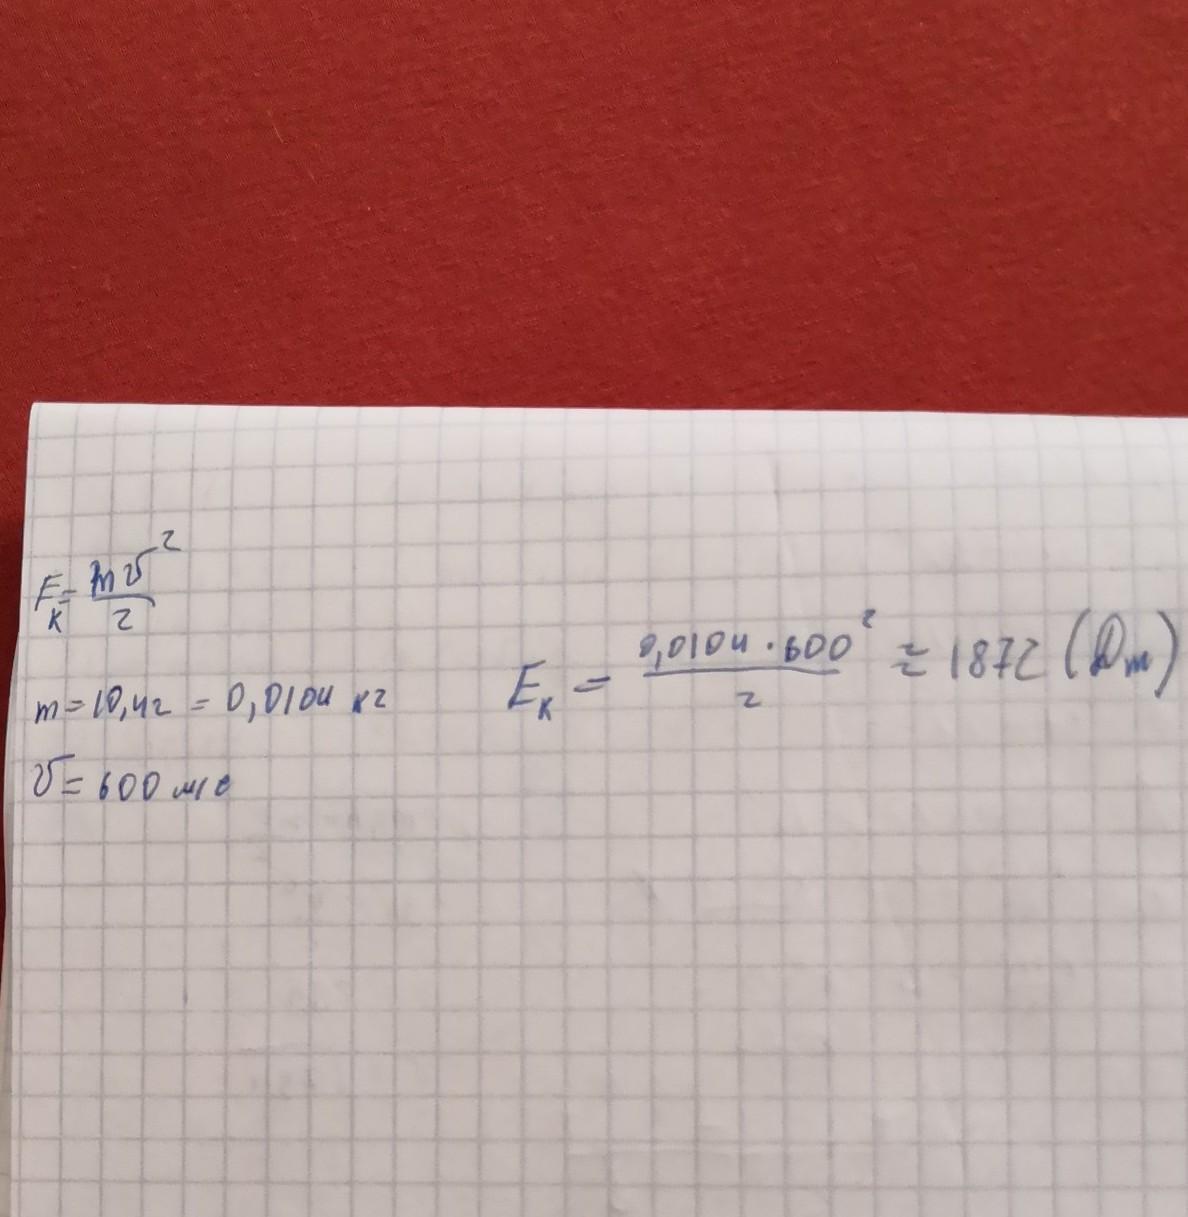 Eк = mv²/2
m = 10,4г = 0,0104 кг
v = 600 м/с
Eк = 0,0104 · 600²/2 ≈ 1872 (Дж)